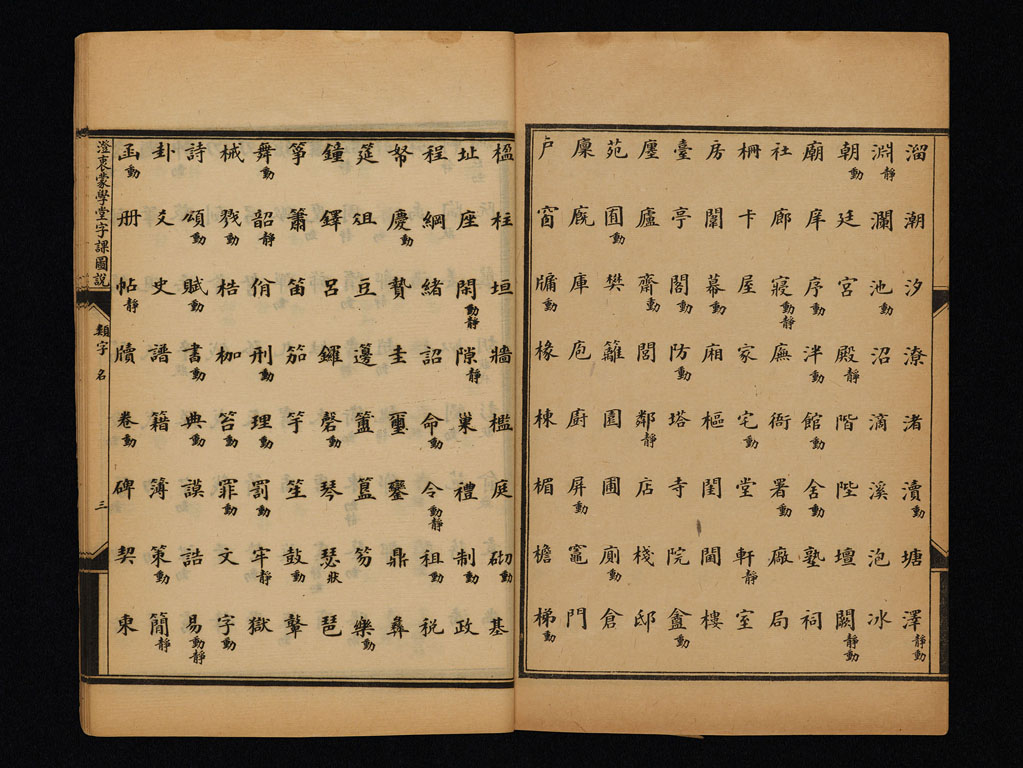 溜潮汐潦渚瀆塘澤靜動
淵靜瀾池動沼滴溪泡冰
朝動廷宮殿靜階陛壇闕靜動
廟庠序動泮動館動舍動塾祠
社廊寢動靜廡衙署動廠局
柵卡屋家宅動堂軒靜室
房闈幕動廂樞閨閫樓
臺亭閣動防動塔寺院盦動
廛廬齋動閭鄰靜店棧邸
苑囿動樊籬園圃廁動倉
廩廐庫庖廚屏動竈門
戶窗牖動椽棟楣檐梯動
楹柱垣牆檻庭砌動基
址座閑動靜隙靜巢禮制動政
程綱緒詔命動令動靜租動稅
帑慶動贄圭璽鑾鼎彝
筵俎豆籩簠簋笏樂動
鐘鐸呂鑼磬動琴瑟狀琶
箏簫笛笳竽笙鼓動鼙
舞動韶靜佾刑動理動罰動牢靜獄
械戮動梏枷笞動罪動文字動
詩頌動賦動書動典動謨誥易動靜
卦爻史譜籍簿策動簡靜
函動册帖靜牘卷動碑契柬
澄衷蒙學堂字課圖說 類字 名 三